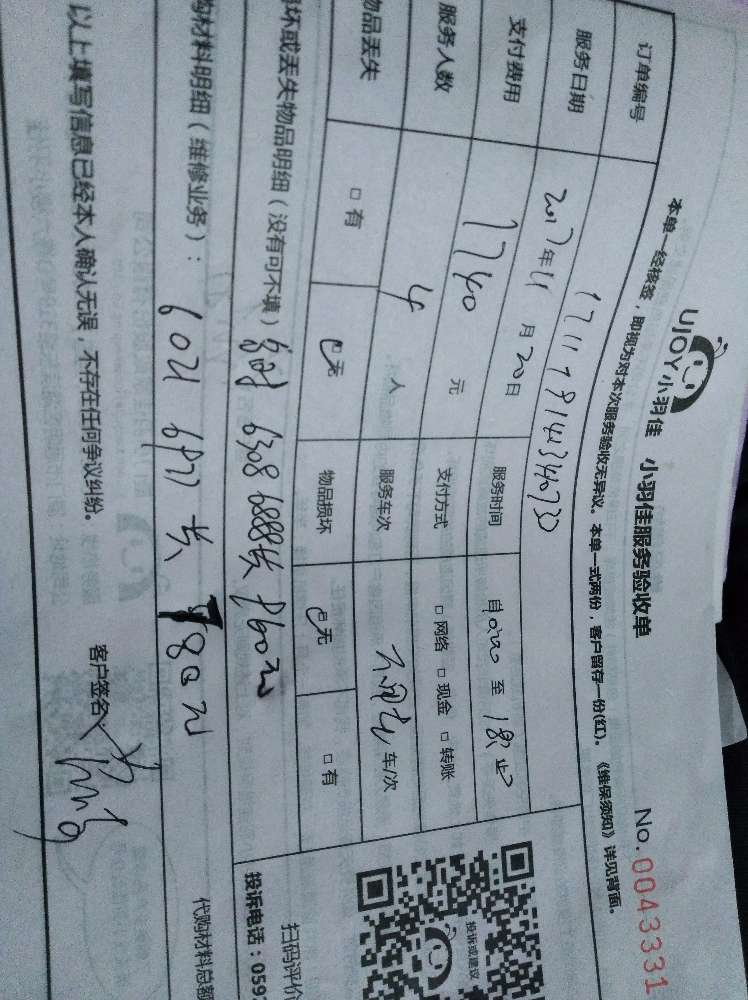 UJOY小羽佳 小羽佳服务验收单
No.0043331
本单一经核签，即视为对本次服务验收无异议。本单一式两份，客户留存一份(红)。《维保须知》详见背面。
订单编号
服务日期 2017年11月20日 服务时间 自 至 止
支付费用 1740元 支付方式 □网络 □现金 □转账
服务人数 4人 服务车次 车/次
物品丢失 □有 □无 物品损坏 □无 □有
坏或丢失物品明细（没有可不填） 6308 6888 960元
购材料明细（维修业务）： 6021 6977 780元
代购材料总额
以上填写信息已经本人确认无误，不存在任何争议纠纷。
客户签名：
投诉或建议
扫码评价
投诉电话：059